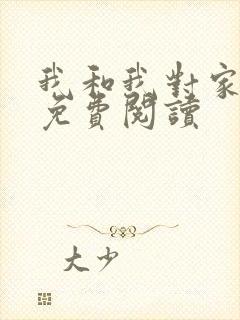 我和我對家
免費閱讀
大少